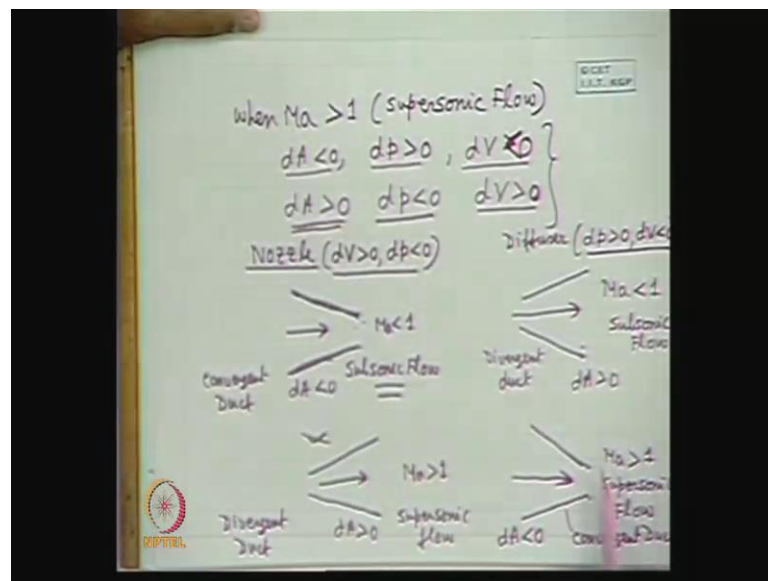 GCET
I.I.T. KGP
When Ma > 1 (Supersonic Flow)
dA < 0, dp > 0, dV < 0
dA > 0 dp < 0 dV > 0
Nozzle (dV > 0, dp < 0)
Diffuser (dp > 0, dV < 0
Ma < 1
Subsonic Flow
Convergent Duct
dA < 0
Ma < 1
Subsonic Flow
Divergent duct
dA > 0
Ma > 1
Supersonic flow
Divergent Duct
dA > 0
Ma > 1
Supersonic Flow
dA < 0
Convergent Duct
NPTEL